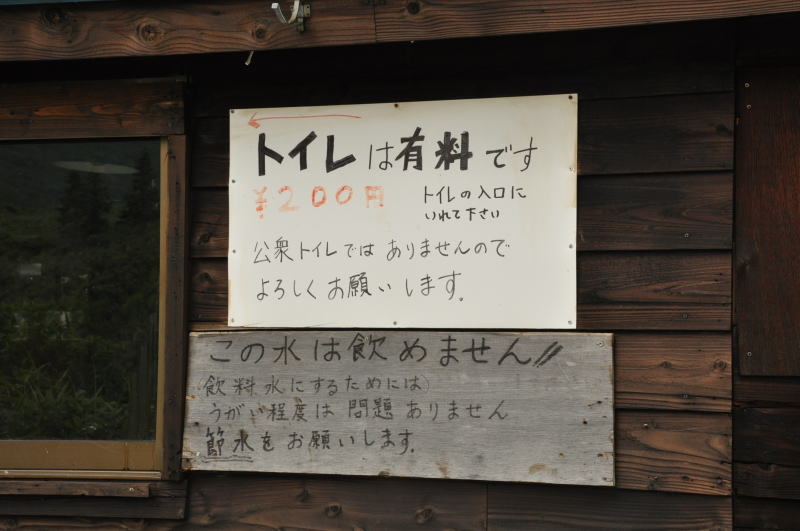 トイレは有料です
¥200円
トイレの入口に
いれて下さい
公衆トイレではありませんので
よろしくお願いします。
この水は飲めません!!
(飲料水にするためには)
うがい程度は問題ありません
節水をお願いします。